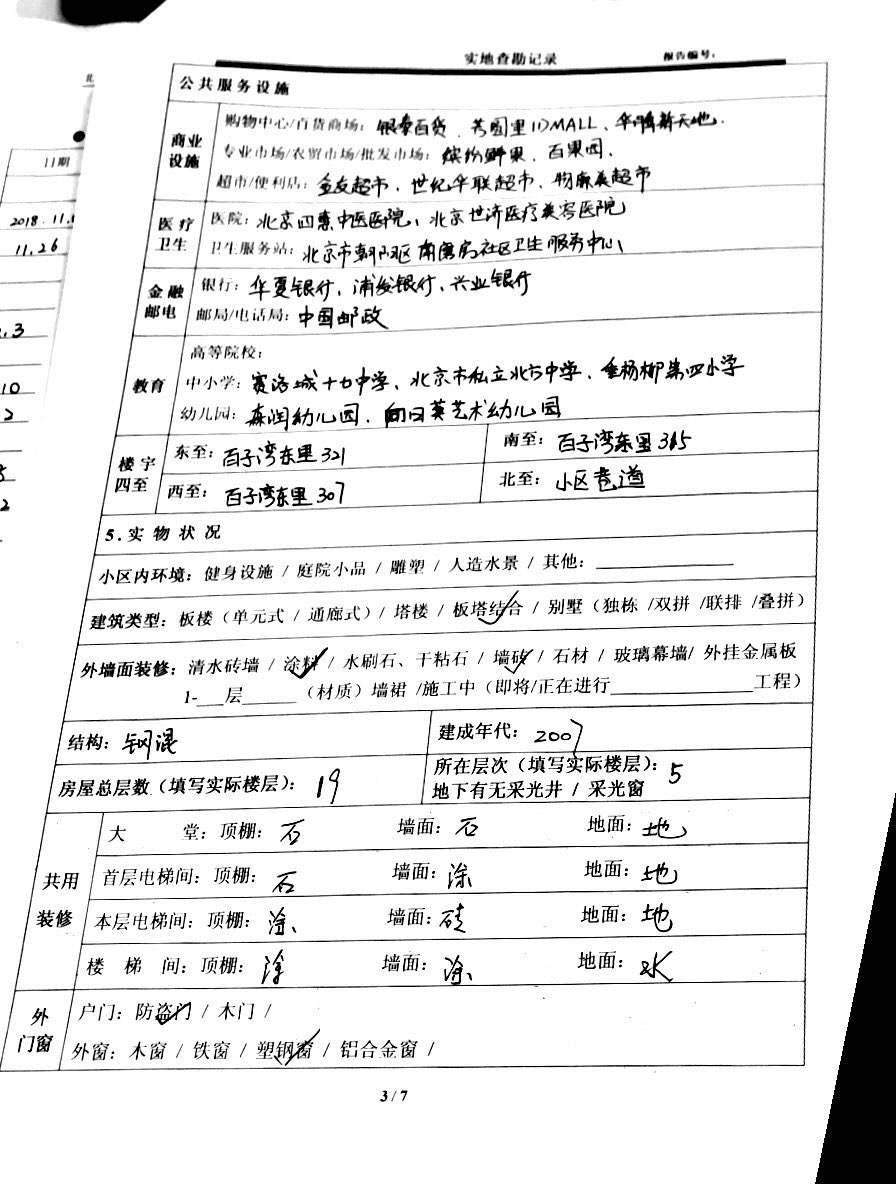 实地查勘记录 报告编号:
公共服务设施
商业设施
购物中心/百货商场: 银泰百货、茗圆里IDMALL、华腾新天地.
专业市场/农贸市场/批发市场: 缤纷鲜果、百果园、
超市/便利店: 金友超市、世纪华联超市、物麻美超市
医疗卫生
医院: 北京四惠中医医院、北京世济医疗美容医院
卫生服务站: 北京市朝阳区南磨房社区卫生服务中心
金融邮电
银行: 华夏银行、浦发银行、兴业银行
邮局/电话局: 中国邮政
教育
高等院校:
中小学: 赛洛城十七中学、北京市私立北方中学、垂杨柳第四小学
幼儿园: 森润幼儿园、向日葵艺术幼儿园
楼宇四至
东至: 百子湾东里321 南至: 百子湾东里315
西至: 百子湾东里307 北至: 小区巷道
5.实物状况
小区内环境: 健身设施 / 庭院小品 / 雕塑 / 人造水景 / 其他:
建筑类型: 板楼(单元式 / 通廊式)/ 塔楼 / 板塔结合 / 别墅(独栋 /双拼 /联排 /叠拼)
外墙面装修: 清水砖墙 / 涂料 / 水刷石、干粘石 / 墙砖 / 石材 / 玻璃幕墙/ 外挂金属板
1-___层______(材质)墙裙 /施工中(即将/正在进行______________工程)
结构: 钢混 建成年代: 2007
房屋总层数(填写实际楼层): 19 所在层次(填写实际楼层): 5
地下有无采光井 / 采光窗
共用装修
大 堂: 顶棚: 石 墙面: 石 地面: 地
首层电梯间: 顶棚: 石 墙面: 涂 地面: 地
本层电梯间: 顶棚: 涂 墙面: 砖 地面: 地
楼 梯 间: 顶棚: 涂 墙面: 涂 地面: 水
外门窗
户门: 防盗门 / 木门 /
外窗: 木窗 / 铁窗 / 塑钢窗 / 铝合金窗 /
3 / 7
日期
2018.11.1
11.26
.3
10
2
5
2